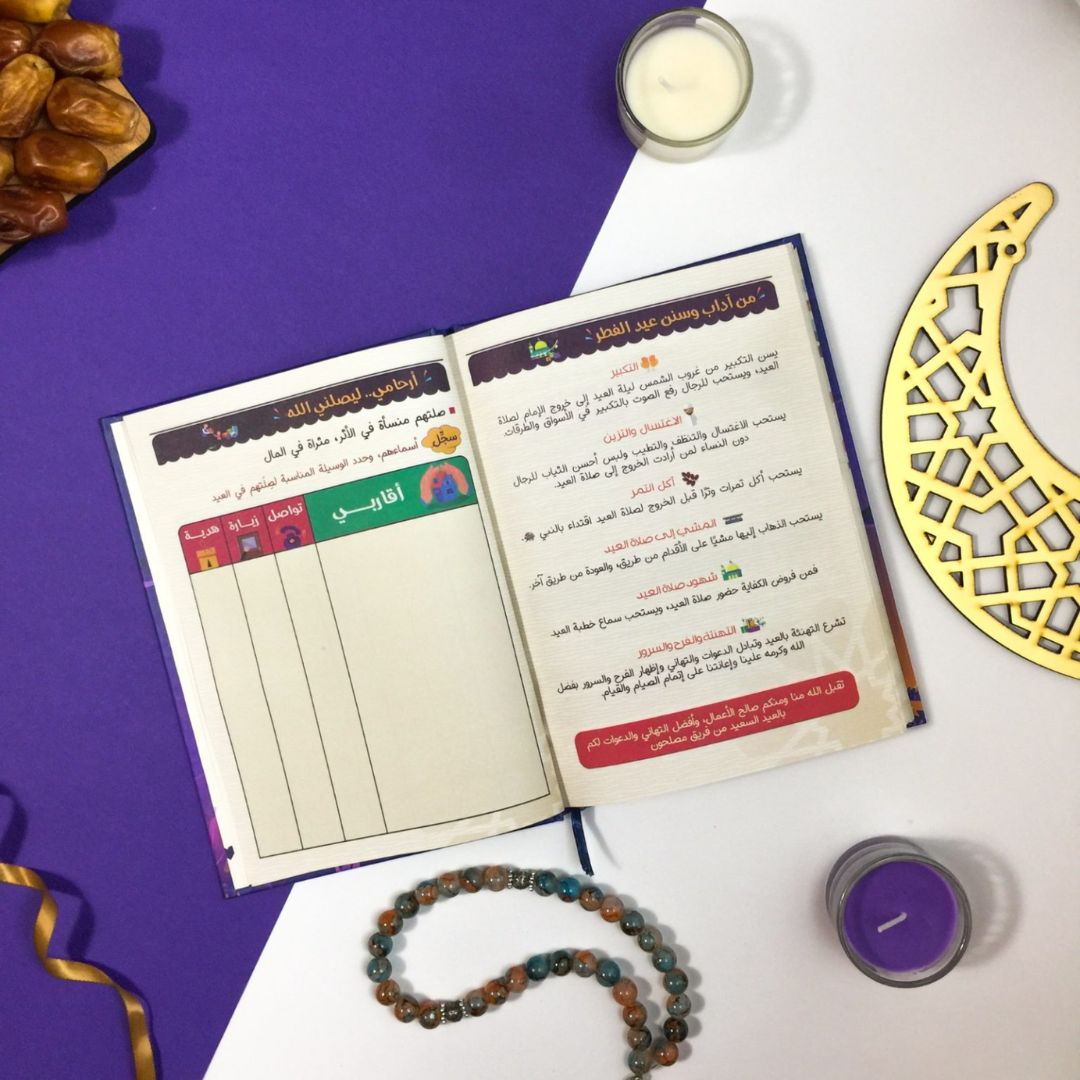 من آداب وسنن عيد الفطر
التكبير
يسن التكبير من غروب الشمس ليلة العيد إلى خروج الإمام لصلاة
العيد، ويستحب للرجال رفع الصوت بالتكبير في الأسواق والطرقات.
الاغتسال والتزين
يستحب الاغتسال والتنظف والتطيب ولبس أحسن الثياب للرجال
دون النساء لمن أرادت الخروج إلى صلاة العيد.
أكل التمر
يستحب أكل تمرات وترًا قبل الخروج لصلاة العيد اقتداء بالنبي ﷺ
المشي إلى صلاة العيد
يستحب الذهاب إليها مشيًا على الأقدام من طريق، والعودة من طريق آخر.
شهود صلاة العيد
فمن فروض الكفاية حضور صلاة العيد، ويستحب سماع خطبة العيد.
التهنئة والفرح والسرور
تشرع التهنئة بالعيد وتبادل الدعوات والتهاني وإظهار الفرح والسرور بفضل
الله وكرمه علينا وإعانتنا على إتمام الصيام والقيام.
تقبل الله منا ومنكم صالح الأعمال، وأفضل التهاني والدعوات لكم
بالعيد السعيد من فريق مصلحون
أرحامي.. ليصلني الله
صلتهم منسأة في الأثر، مثراة في المال
سجّل أسماءهم، وحدد الوسيلة المناسبة لصِلَتهم في العيد
أقاربي تواصل زيارة هدية